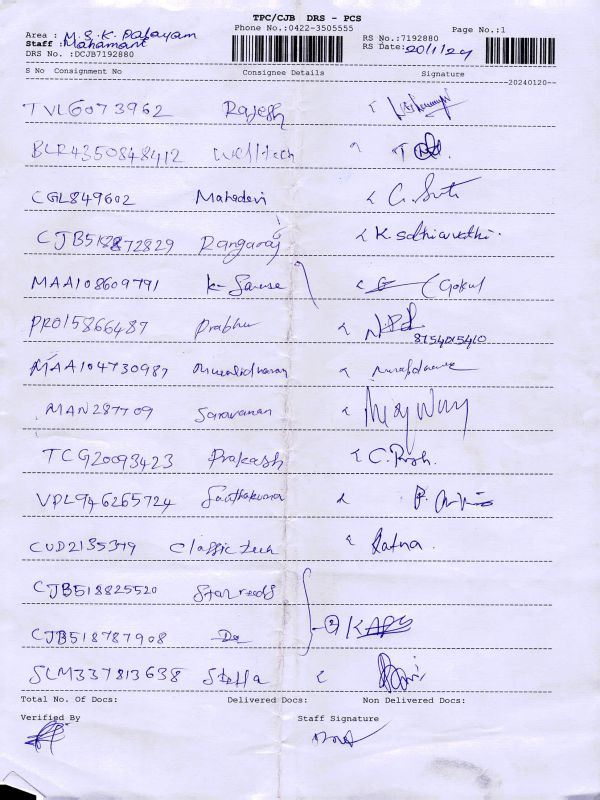 TPC/CJB DRS - PCS
Phone No.:0422-3505555 Page No.:1
Area : M.S.K. Palayam RS No.:7192880
Staff : RS Date: 20/1/24
DRS No. :DCJB7192880
S No Consignment No Consignee Details Signature
20240120
TVL6073962 Rajesh
BLR4350848412 Welltech
CGL849602 Mahadevi
CJB518872829 Rangaraj K. Sathiavathi.
MAA108609791 (Gokul
PRO15866487 Prabhu 8754015410
MAA104730987 Muralidharan
MAN287709 Saravanan
TCG20093423 Prakash
VPL946265724
CUD2135379 Classic tech Ratna.
CJB518825520
CJB518787908 Do
SLM337813638 Stella
Total No. Of Docs: Delivered Docs: Non Delivered Docs:
Verified By Staff Signature